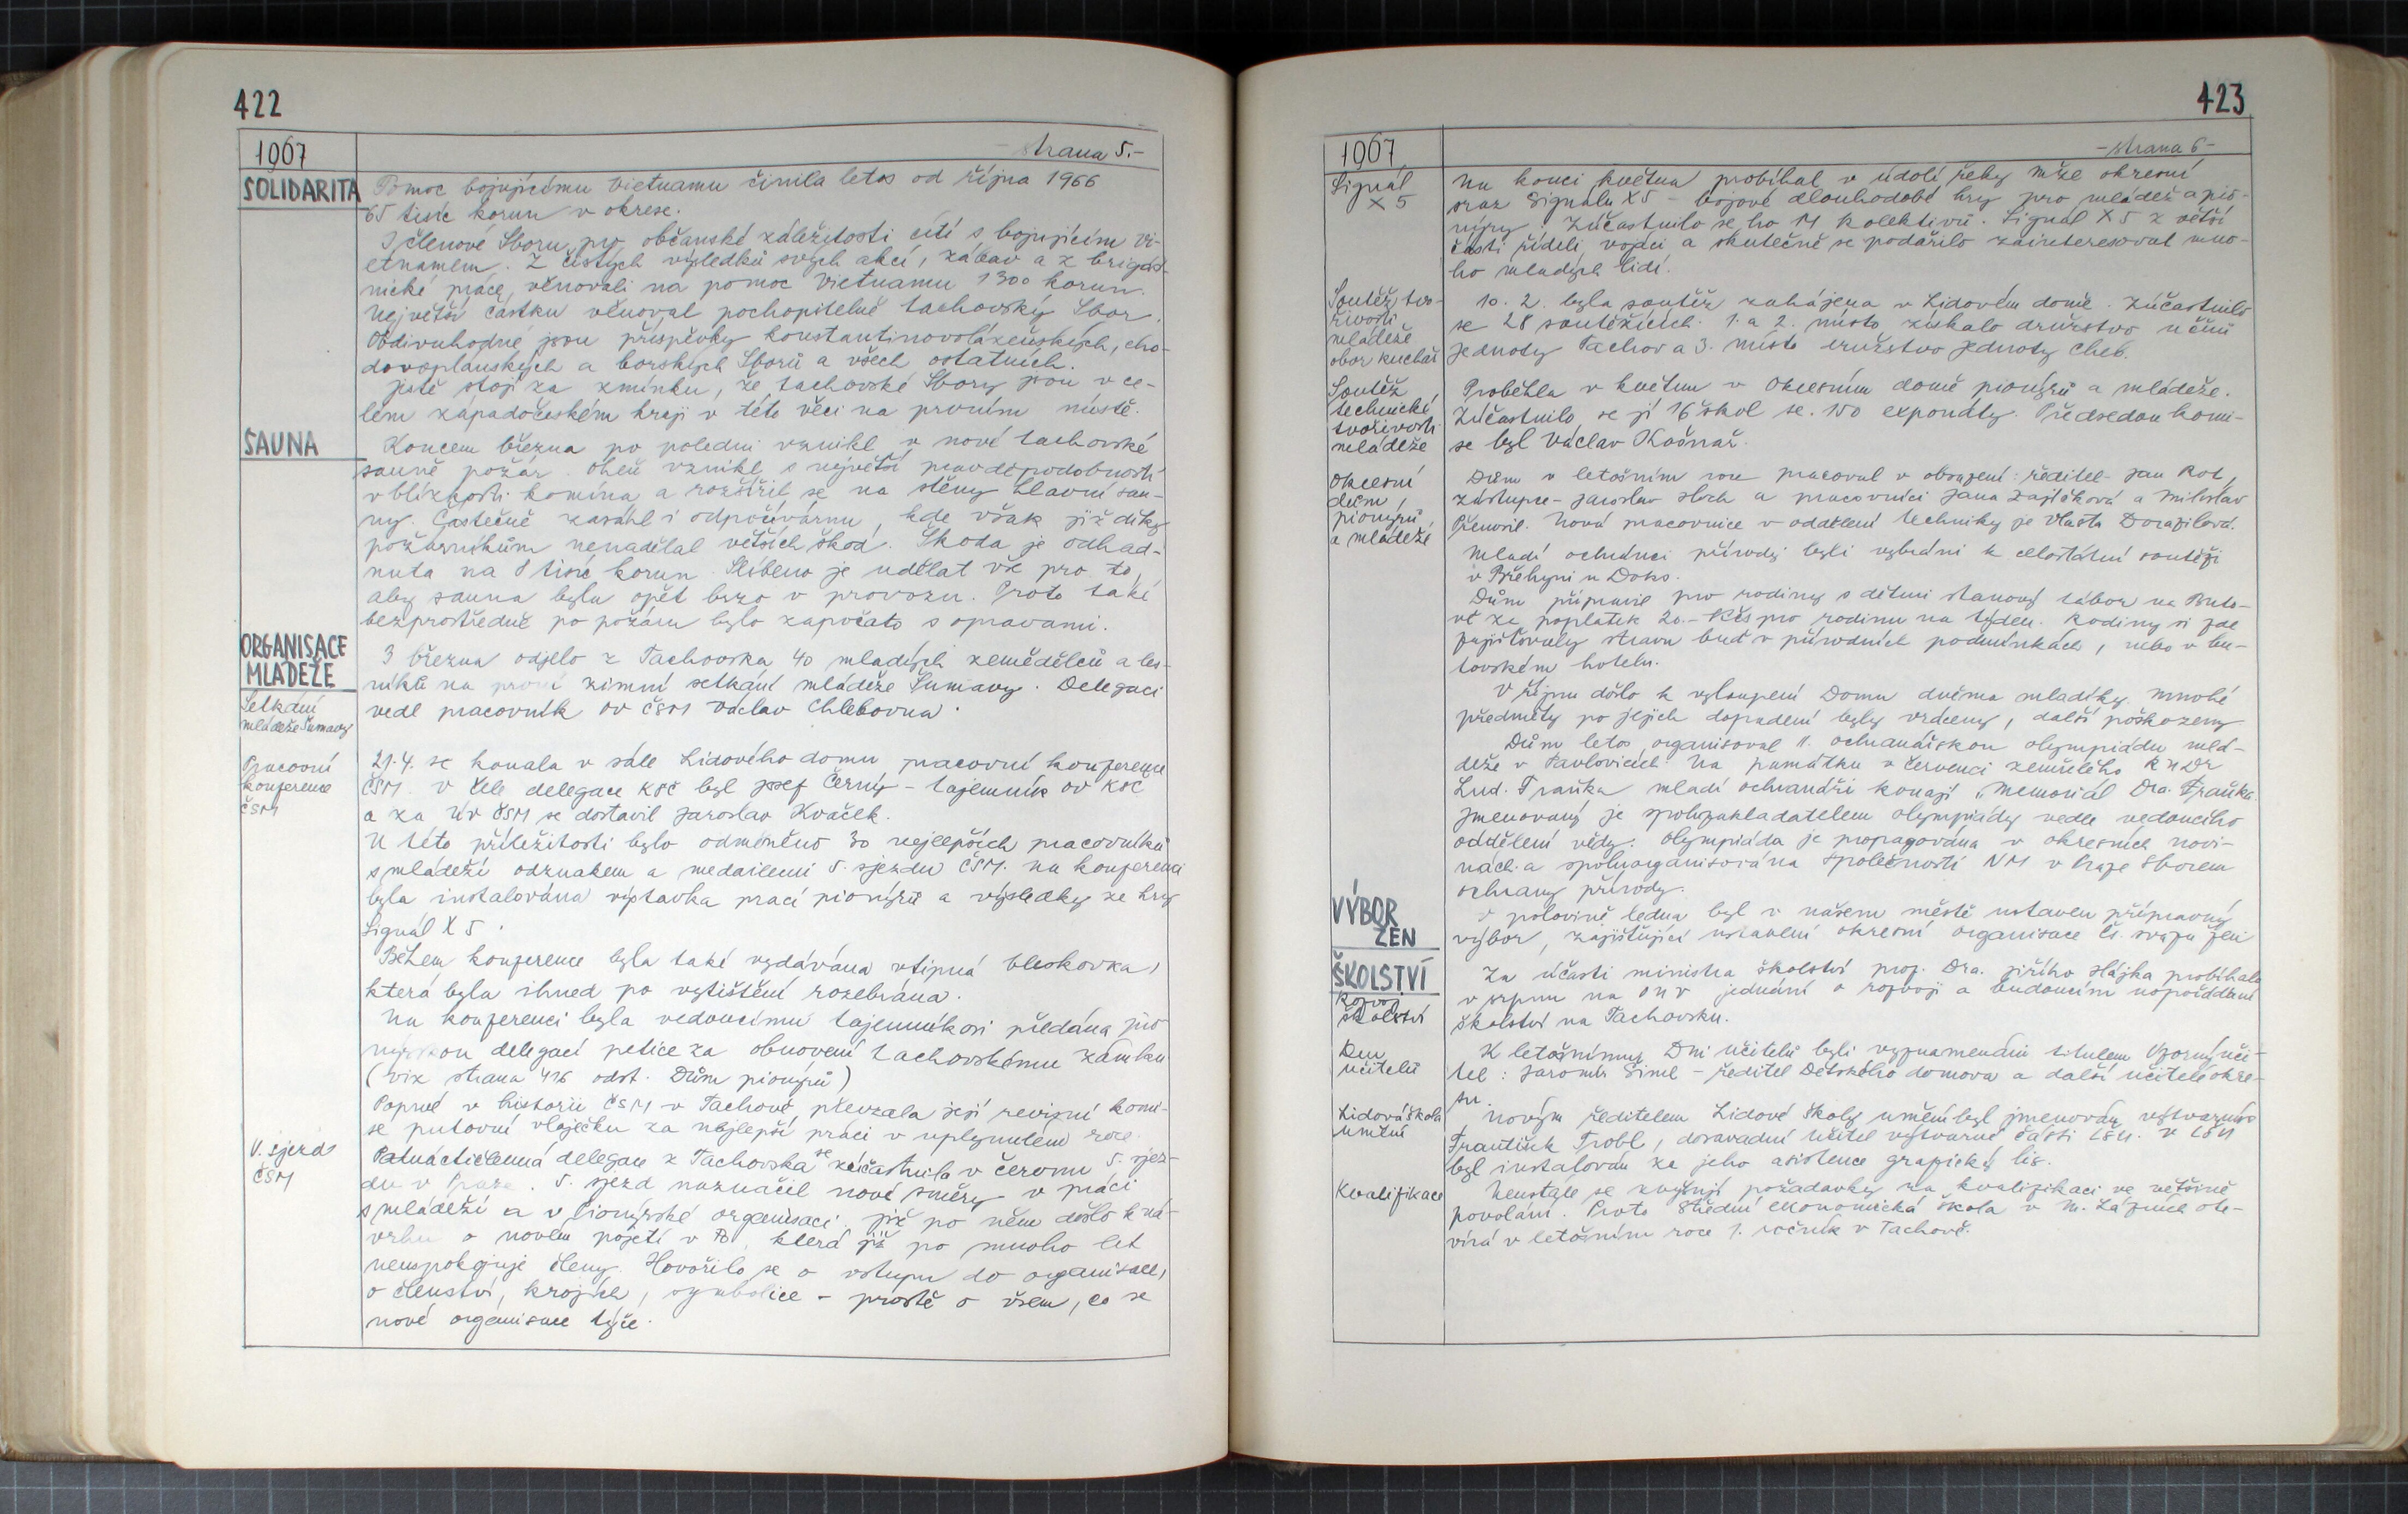 422
1967
- strana 5.-
SOLIDARITA
Pomoc bojujícímu Vietnamu činila letos od října 1966
65 tisíc korun v okrese.
I členové Sboru pro občanské záležitosti cítí s bojujícím Vi-
etnamem. Z čistých výsledků svých akcí, zábav a z brigád-
nické práce, věnovali na pomoc Vietnamu 1300 korun.
Největší částku věnoval pochopitelně tachovský Sbor.
Obdivuhodné jsou příspěvky konstantinovolázeňských, cho-
dovoplanských a borských Sborů a všech ostatních.
Jistě stojí za zmínku, že tachovské Sbory jsou v ce-
lém západočeském kraji v této věci na prvním místě.
SAUNA
Koncem března po poledni vznikl v nové tachovské
sauně požár. Oheň vznikl s největší pravděpodobností
v blízkosti komína a rozšířil se na stěny hlavní sau-
ny. Částečně zasáhl i odpočívárnu, kde však již díky
požárníkům nenadělal větších škod. Škoda je odhad-
nuta na 8 tisíc korun. Slíbeno je udělat vše pro to,
aby sauna byla opět brzo v provozu. Proto také
bezprostředně po požáru bylo započato s opravami.
ORGANISACE
MLÁDEŽE
Setkání
mládeže Šumavy
3 března odjelo z Tachovska 40 mladých zemědělců a les-
níků na první zimní setkání mládeže Šumavy. Delegaci
vedl pracovník OV ČSM Václav Chlebovna.
Pracovní
konference
ČSM
21.4. se konala v sále Lidového domu pracovní konference
ČSM. V čele delegace KSČ byl Josef Černý - tajemník OV KSČ
a za ÚV ČSM se dostavil Jaroslav Kvaček.
U této příležitosti bylo odměněno 30 nejlepších pracovníků
s mládeží odznakem a medailemi 5. sjezdu ČSM. Na konferenci
byla instalována výstavka prací pionýrů a výsledky ze hry
Signál X 5.
Během konference byla také vydávána vtipná bleskovka,
která byla ihned po vytištění rozebrána.
Na konferenci byla vedoucímu tajemníkovi předána pio-
nýrskou delegací petice za obnovení tachovskému zámku
(viz strana 416 odst. Dům pionýrů)
Poprvé v historii ČSM v Tachově, převzala její revizní komi-
se putovní vlaječku za nejlepší práci v uplynulém roce.
V. sjezd
ČSM
Patnáctičlenná delegace z Tachovska se zúčastnila v červnu 5. sjez-
du v Praze. 5. sjezd naznačil nové směry v práci
s mládeží a v Pionýrské organisaci. Již po něm došlo k ná-
vrhu o novém pojetí v PO, která již po mnoho let
neuspokojuje členy. Hovořilo se o vstupu do organisace,
o členství, krojích, symbolice - prostě o všem, co se
nové organisace týče.
423
1967
- strana 6 -
Signál
X 5
Na konci května probíhal v údolí řeky Mže okresní
sraz Signálu X 5 - bojové dlouhodobé hry pro mládež a pio-
nýry. Zúčastnilo se ho 14 kolektivů. Signál X 5 z větší
části řídili vojáci a skutečně se podařilo zainteresovat mno-
ho mladých lidí.
Soutěž tvo-
řivosti
mládeže
obor kuchař
10. 2. byla soutěž zahájena v Lidovém domě. Zúčastnilo
se 28 soutěžících. 1. a 2. místo získalo družstvo učňů
Jednoty Tachov a 3. místo družstvo Jednoty Cheb.
Soutěž
technické
tvořivosti
mládeže
Proběhla v květnu v Okresním domě pionýrů a mládeže.
Zúčastnilo se jí 16 škol se. 150 exponáty. Předsedou komi-
se byl Václav Košnař.
Okresní
dům
pionýrů
a mládeže
Dům v letošním roce pracoval v obsazení: ředitel - Jan Rot,
zástupce - Jaroslav Sloch a pracovníci Jana Zajíčková a Miloslav
Přenosil. Nová pracovnice v oddělení techniky je Vlasta Dorazilová.
Mladí ochránci přírody byli vybráni k celostátní soutěži
v Břehyni u Doks.
Dům připravil pro rodiny s dětmi stanový tábor na Buto-
vě za poplatek 20.- Kčs pro rodinu na týden. Rodiny si zde
zajišťovaly stravu buď v přírodních podmínkách, nebo v bu-
tovském hotelu.
V říjnu došlo k vyloupení Domu dvěma mladíky. Mnohé
předměty po jejich dopadení byly vráceny, další poškozeny.
Dům letos organisoval II. ochranářskou olympiádu mlá-
deže v Pavlovicích. Na památku v červenci zemřelého RNDr
Lud. Fraňka mladí ochranáři konají "Memoriál Dra. Fraňka.
Jmenovaný je spoluzakladatelem olympiády vedle vedoucího
oddělení vědy. Olympiáda je propagována v okresních novi-
nách a spoluorganisována Společností NM v Praze Sborem
ochrany přírody.
VÝBOR
ŽEN
V polovině ledna byl v našem městě ustaven přípravný
výbor, zajišťující ustavení okresní organisace čs. svazu žen
ŠKOLSTVÍ
Rozvoj
školství
Za účasti ministra školství prof. Dra. Jiřího Hájka probíhala
v srpnu na ONV jednání o rozvoji a budoucím uspořádání
školství na Tachovsku.
Den
učitelů
K letošnímu Dni učitelů byli vyznamenáni titulem Vzorný uči-
tel: Jaromír Siml - ředitel Dětského domova a další učitelé okre-
su.
Lidová škola
umění
Novým ředitelem Lidové školy umění byl jmenován výtvarník
František Trobl, dosavadní učitel výtvarné části LŠU. V LŠU
byl instalován za jeho asistence grafický lis.
Kvalifikace
Neustále se zvyšují požadavky na kvalifikaci ve většině
povolání. Proto Střední ekonomická škola v M. Lázních ote-
vírá v letošním roce 1. ročník v Tachově.